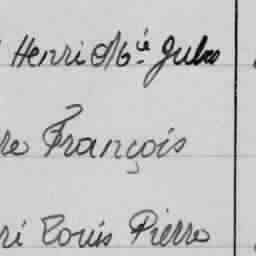 Henri M.ie Jules
re François
ri Louis Pierre